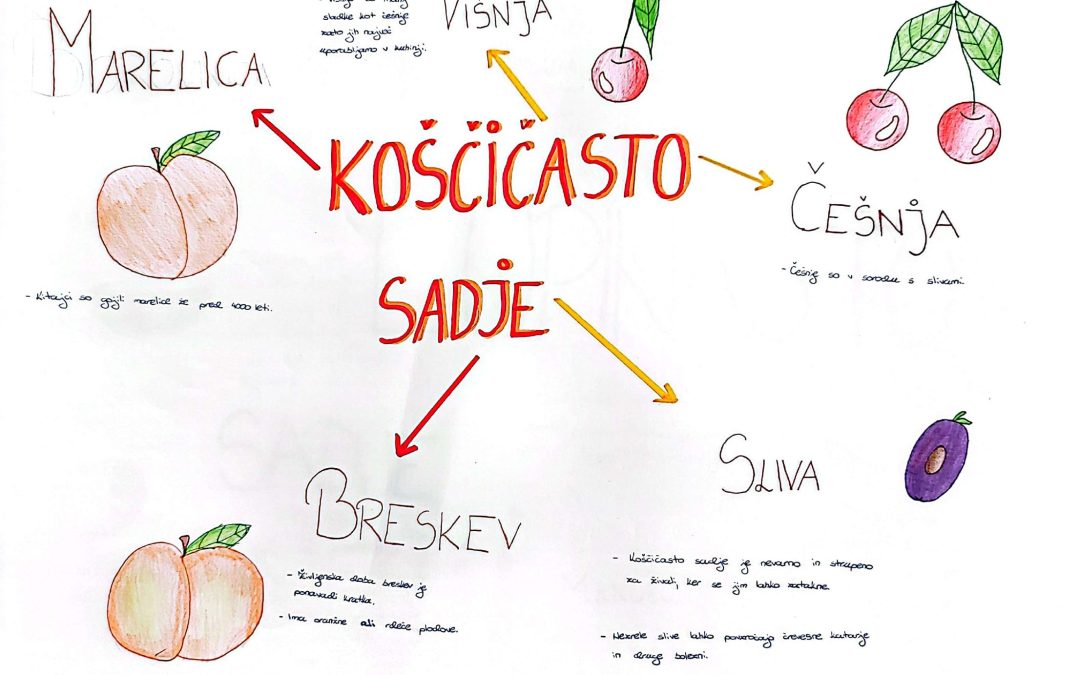 MARELICA
sladke kot češnje
zato jih največ
uporabljamo v kuhinji.
VIŠNJA
KOŠČIČASTO
SADJE
ČEŠNJA
- Češnje so v sorodu s slivami.
- Kitajci so gojili marelice že pred 4000 leti.
BRESKEV
- Življenska doba breskev je
ponavadi kratka.
- Ima oranžne ali rdeče plodove.
SLIVA
- Koščičasto sadje je nevarno in strupeno
za živali, ker se jim lahko zatakne.
- Nezrele slive lahko povzročajo črevesne katarje
in druge bolezni.